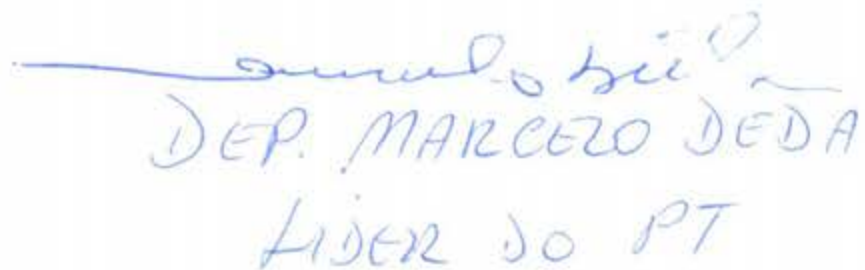 DEP. MARCELO DÉDA
LIDER DO PT